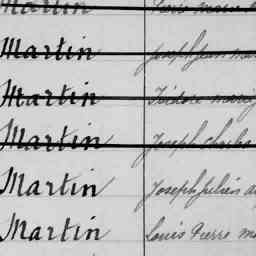 Martin
Martin Joseph Jean
Martin Isidore
Martin Joseph Charles
Martin Joseph Julien
Martin Louis Pierre